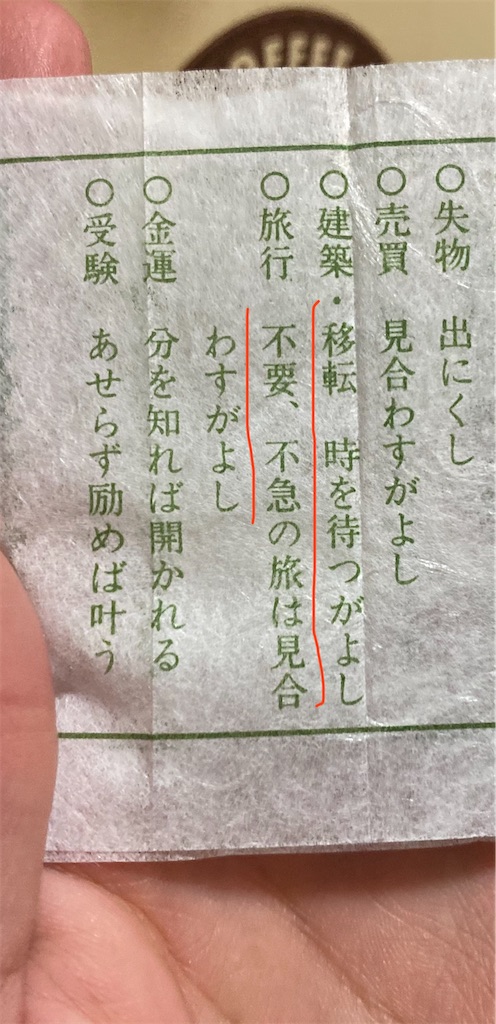 OFFEE
○失物　出にくし
○売買　見合わすがよし
○建築・移転　時を待つがよし
○旅行　不要、不急の旅は見合
わすがよし
○金運　分を知れば開かれる
○受験　あせらず励めば叶う